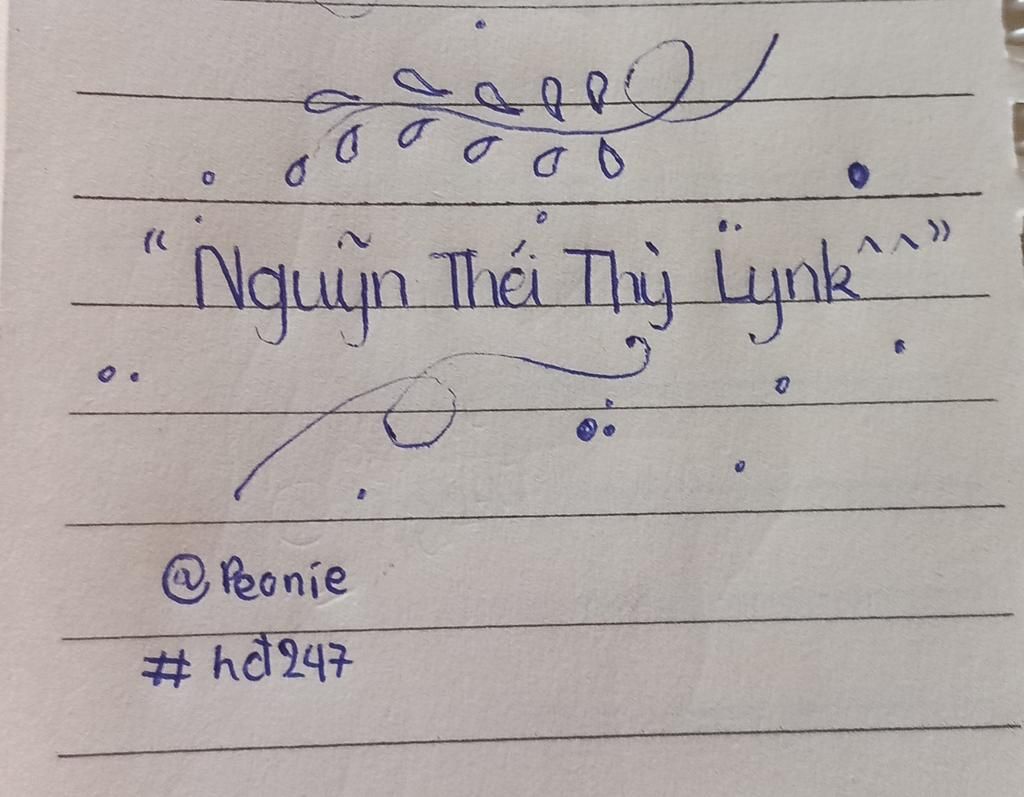 “Nguỹn Théi Thỳ Lynk^^”
@Peonie
# hdt247